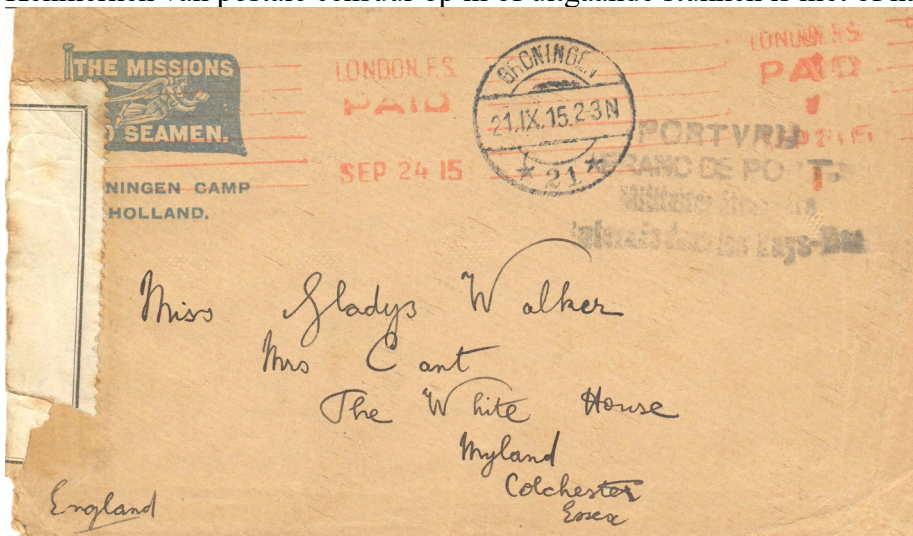 THE MISSIONS
SEAMEN.
CAMP
HOLLAND.
LONDON. F.S.
PAID
SEP 24 15
GRONINGEN
21.IX.15.2-3N
* 21 *
LONDON. F.S.
PAID
PORTVRIJ
FRANC DE PORT
Militaires
Internés dans les Pays-Bas
Miss Gladys Walker
Mrs Cant
The White House
Myland
Colchester
Essex
England